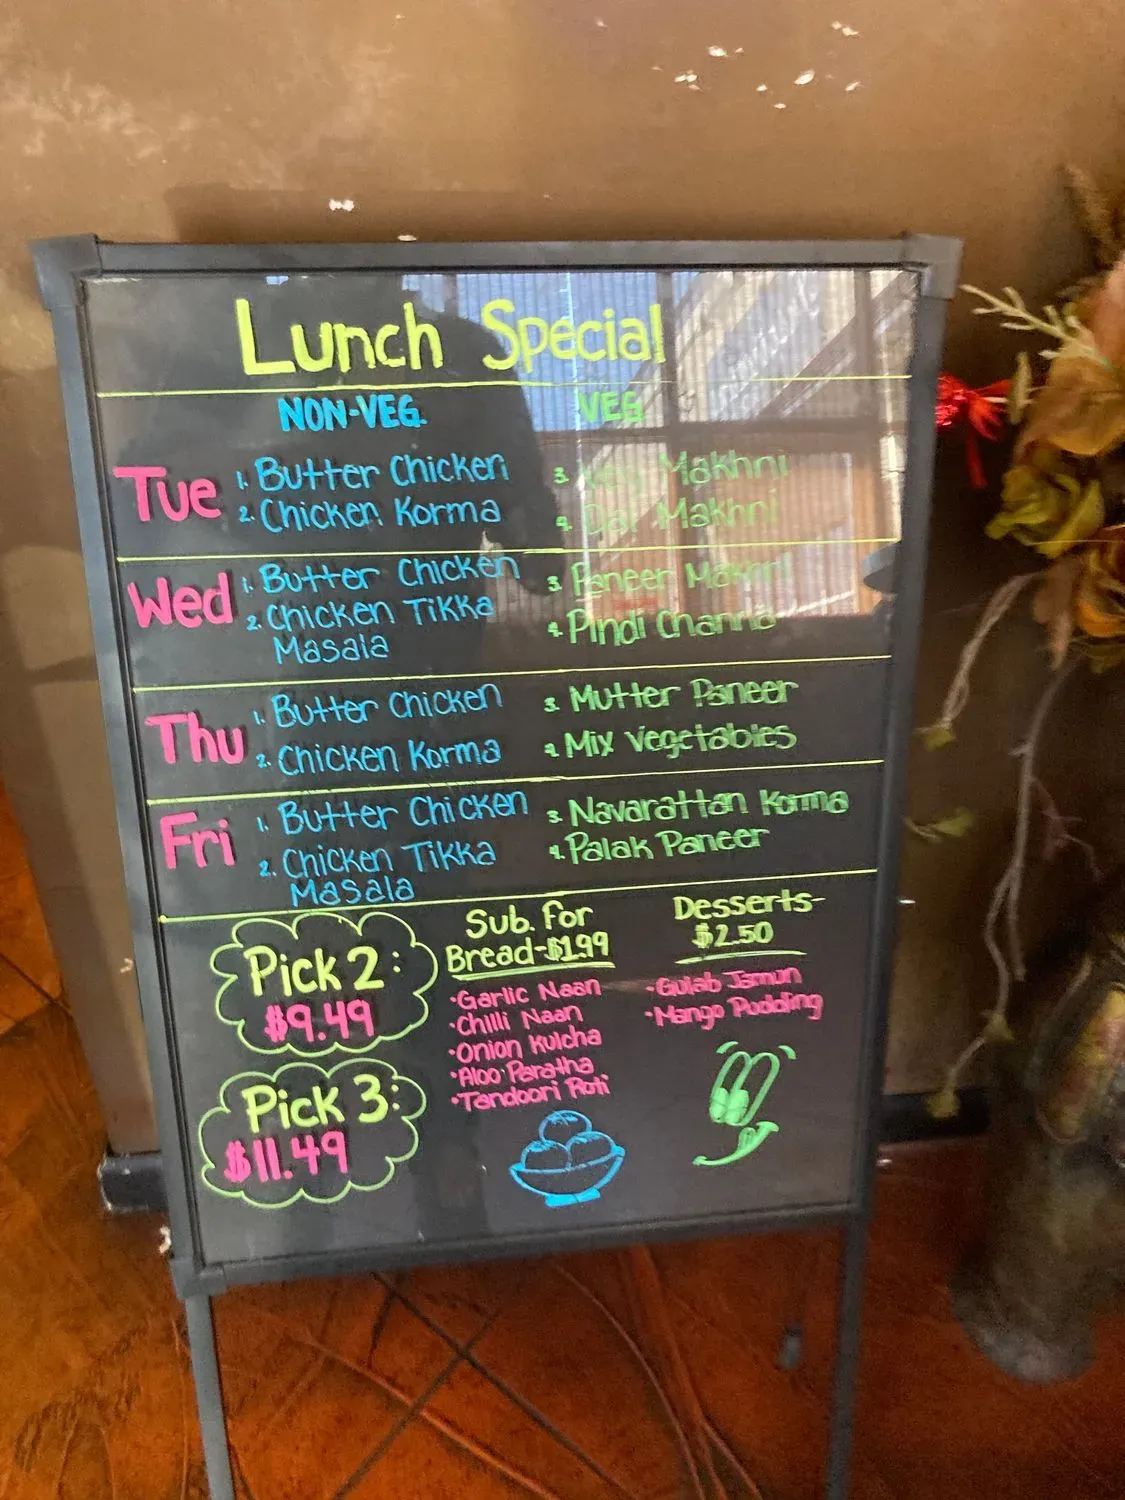 Lunch Special
NON-VEG. VEG
Tue 1. Butter Chicken 3. Veg Makhni
2. Chicken Korma 4. Dal Makhni
Wed 1. Butter Chicken 3. Paneer Makhni
2. Chicken Tikka 4. Pindi Channa
Masala
Thu 1. Butter Chicken 3. Mutter Paneer
2. Chicken Korma 4. Mix Vegetables
Fri 1. Butter Chicken 3. Navarattan Korma
2. Chicken Tikka 4. Palak Paneer
Masala
Pick 2:
$9.49
Pick 3:
$11.49
Sub. for
Bread-$1.99
•Garlic Naan
•Chilli Naan
•Onion Kulcha
•Aloo Paratha
•Tandoori Roti
Desserts-
$2.50
•Gulab Jamun
•Mango Pudding